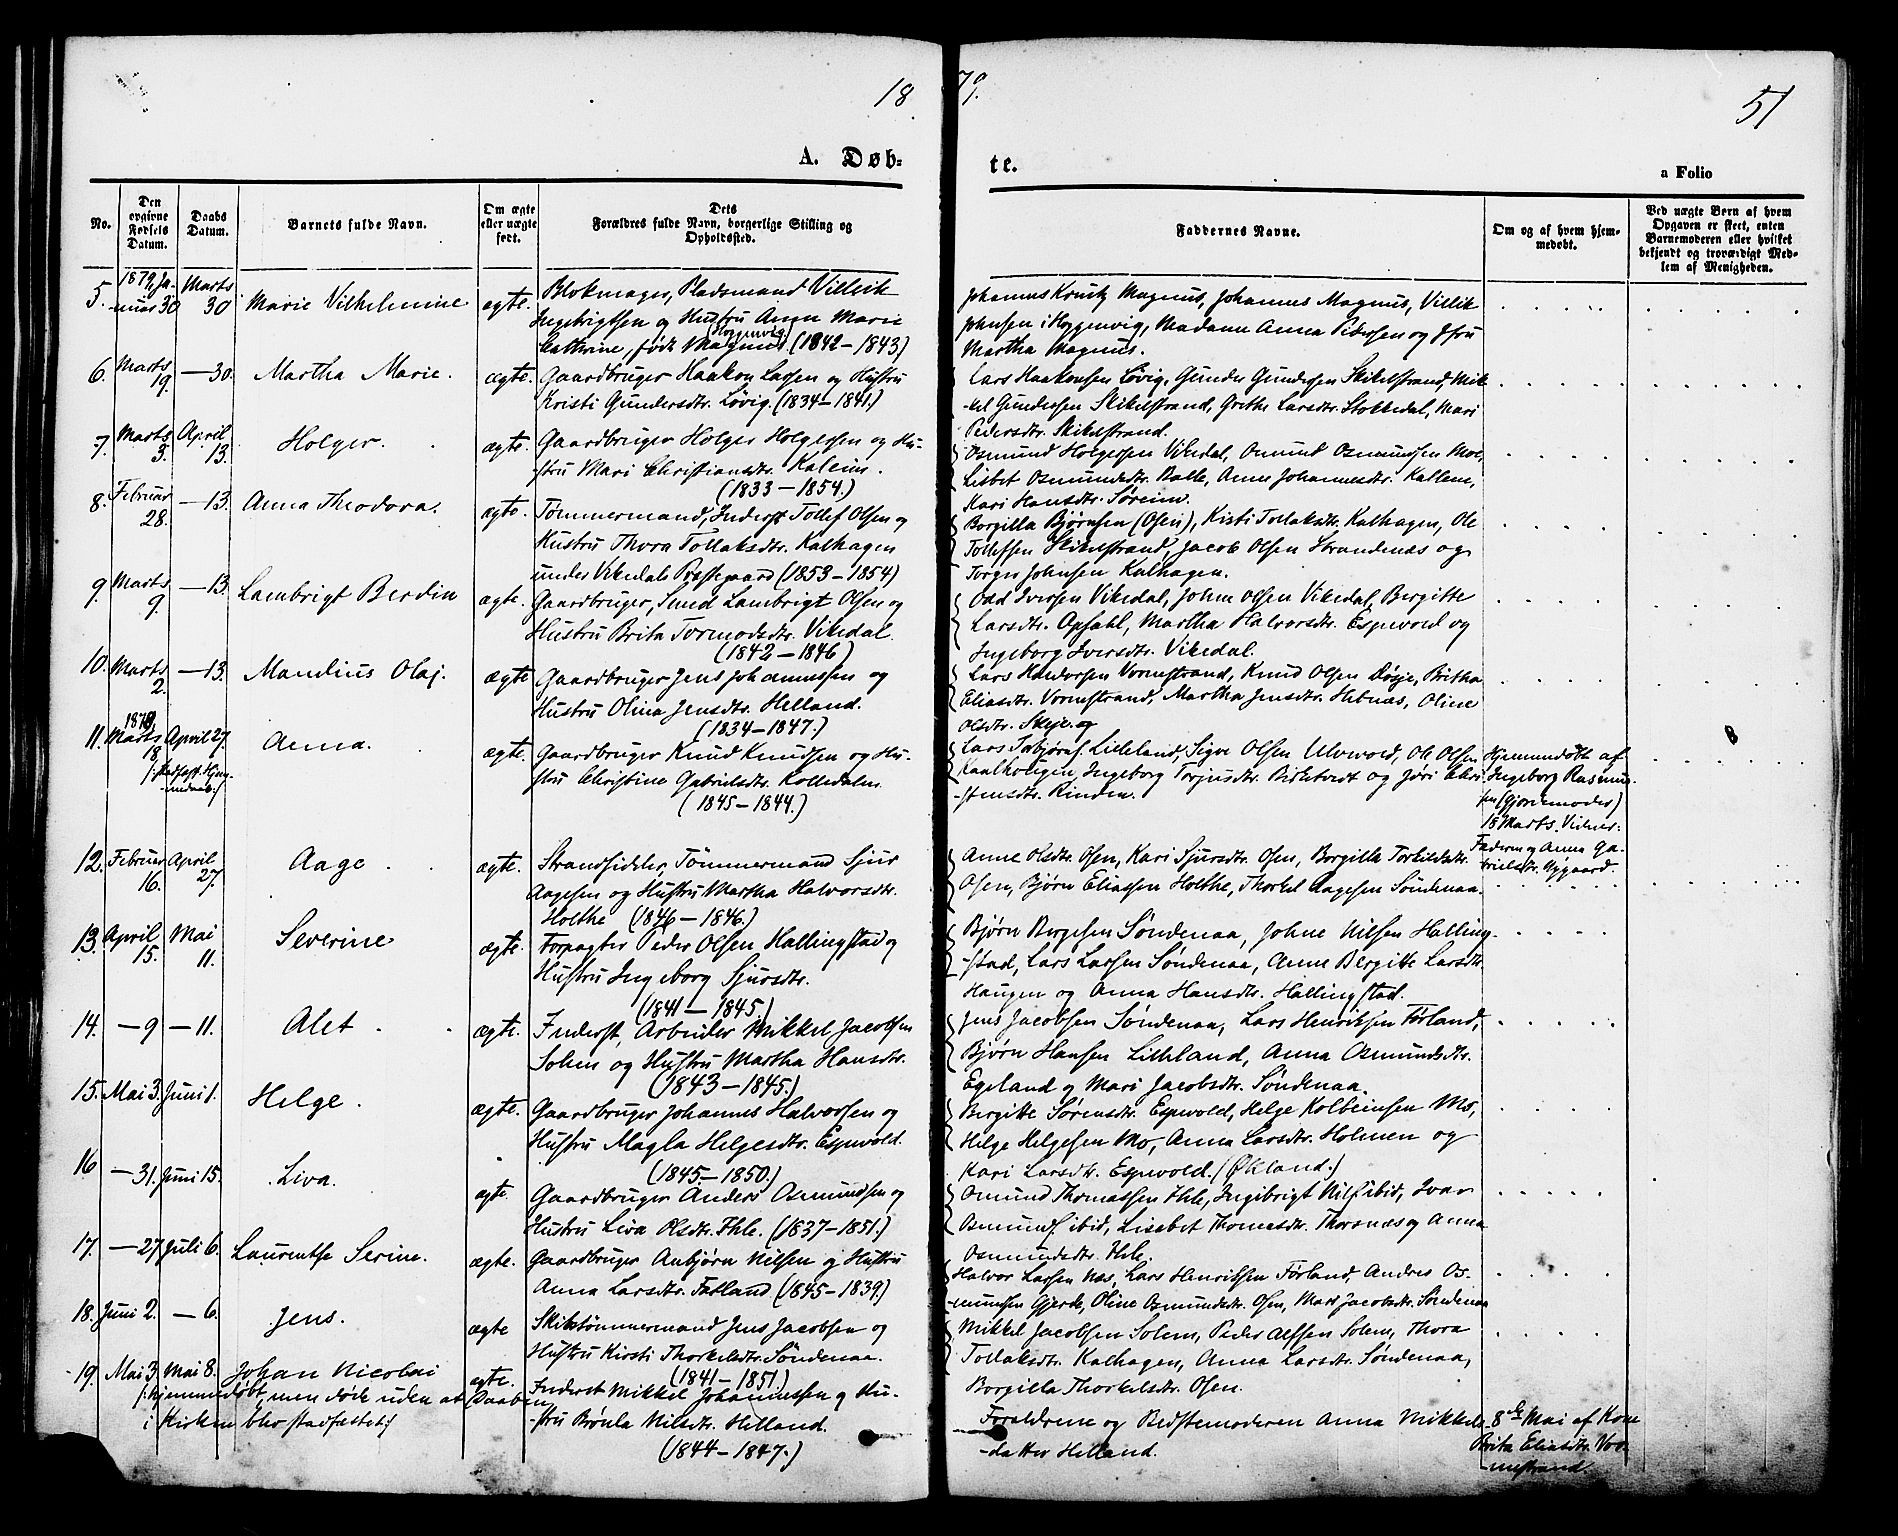 1879.
51
A. Døbte.
a Folio
No.
Den opgivne Fødsels Datum.
Daabs Datum.
Barnets fulde Navn.
Om ægte eller uægte født.
Dets Forældres fulde Navn, borgerlige Stilling og Opholdssted.
Faddernes Navne.
Om og af hvem hjemmedøbt.
Ved uægte Børn af hvem Opgaven er skeet, enten Barnemoderen eller hvilket bekjendt og troværdigt Medlem af Menigheden.
5. 1879, Januar 30 Marts 30 Marie Vilhelmine ægte. Blokmager, Pladsmand Villik
Ingebrigtsen og Hustru Anna Marie
Cathrine, født Magnus (Hoggenvig) (1842-1843)
Johannes Magnus, Villik
Johnsen i Hoggenvig, Madame Anna Pedersen og Jfru
Martha Magnus.
6. Marts 19. — 30. Martha Marie. ægte. Gaardbruger Haakon Larsen og Hustru
Kristi Gundersdtr. Løvig. (1834-1841.)
Lars Haakonsen Løvig, Gunder Gundersen Skikelstrand, Mik-
-kel Gundersen Skikelstrand, Grethe Larsdtr. Stokkedal, Mari
Pedersdtr. Skikelstrand.
7. Marts 3. April 13. Holger. ægte. Gaardbruger Holger Holgersen og Hu-
-stru Mari Christiansdtr. Kaleim.
(1833-1854.)
Osmund Holgersen Vikedal, Omund Osmundsen Moe,
Lisbet Osmundsdtr. Balle, Anne Johannesdtr. Kallem,
Kari Hansdtr. Søreim.
8. Februar 28. — 13. Anna Theodora. ægte. Tømmermand, Inderst Tollef Olsen og
Hustru Thora Tollaksdtr. Kalhagen
under Vikedals Præstegaard (1853-1854)
Borgilla Bjørnsen (Osen), Kisti Tollaksdtr. Kalhagen, Ole
Tollefsen Skikelstrand, Jacob Olsen Strandenæs og
Torger Johnsen Kalhagen.
9. Marts 9. — 13. Lambrigt Berdin ægte. Gaardbruger, Smed Lambrigt Olsen og
Hustru Brita Tormodsdtr. Vikedal.
(1842-1846)
Odd Iversen Vikedal, Johne Olsen Vikedal, Bergitte
Larsdtr. Opsahl, Martha Halvorsdtr. Espevold og
Ingeborg Iversdtr. Vikedal.
10. Marts 2. — 13. Mandius Olaj. ægte Gaardbruger Jens Johannessen og
Hustru Olina Jensdtr. Helland.
(1834-1847.)
Lars Vormestrand, Knud Olsen Døsje, Britha
Eliasdtr. Vormestrand, Martha Jensdtr. Hebnæs, Oline
Olsdtr. Skeje og
11. 1879, Marts 18. April 27. Anna. ægte. Gaardbruger Knud Knudsen og Hu-
-stru Christine Gabrielsdtr. Kolledalen.
(1845-1844.)
Lars Torbjørns. Lilleland, Sigve Olsen Ulvevold, Ole Olsen
Kaalhougen, Ingeborg Torjusdtr. Birkeveedt og Jøri Chri-
-stensdtr. Rinden.
Hjemmedøbt af
Ingeborg Rasmus-
sen (Gjordemoder)
18 Marts. Vidner:
Faderen og Anna Ga-
brielsdtr. Nygaard.
12. Februar 16. April 27. Aage. ægte. Strandsidder, Tømmermand Sjur
Aagesen og Hustru Martha Halvorsdtr.
Holthe (1846-1846.)
Anne Olsdtr. Osen, Kari Sjursdtr. Osen, Borgilla Torkildsdtr.
Osen, Bjørn Eliassen Holthe, Thorkel Aagesen Søndenaa.
13. April 15. Mai 11. Severine ægte. Forpagter Peder Olsen Hallingstad og
Hustru Ingeborg Sjursdtr.
(1841-1845.)
Bjørn Bergesen Søndenaa, Johne Nilsen Halling-
-stad, Lars Larsen Søndenaa, Anne Bergitte Larsdtr.
Haugen og Anna Hansdtr. Hallingstad.
14. — 9 — 11. Alet. ægte. Inderst, Arbeider Mikkel Jacobsen
Solem og Hustru Martha Hansdtr.
(1843-1845.)
Jens Jacobsen Søndenaa, Lars Henriksen Førland,
Bjørn Hansen Lilleland, Anna Osmundsdtr.
Egeland og Mari Jacobsdtr. Søndenaa.
15. Mai 3. Juni 1. Helge. ægte. Gaardbruger Johannes Halvorsen og
Hustru Magla Helgesdtr. Espevold.
(1845-1850.)
Bergitte Sørensdtr. Espevold, Helge Kolbeinsen Mo,
Helge Helgesen Mo, Anna Larsdtr. Holmen og
Kari Larsdtr. Espevold. (Økland.)
16 — 31. Juni 15. Liva. ægte. Gaardbruger Anders Osmundsen og
Hustru Liva Olsdtr. Ihle. (1837-1851.)
Omund Thomassen Ihle, Ingebrigt Nils. ibid, Ivar
Osmunds. ibid, Lisabet Thomasdtr. Thorsnæs og Anna
Osmundsdtr. Ihle.
17. — 27. Juli 6. Laurentse Serine. ægte. Gaardbruger Anbjørn Nilsen og Hustru
Anna Larsdtr. Fatland (1845-1839.)
Halvor Larsen Næs, Lars Henriksen Førland, Andres Os-
-mundsen Gjerde, Oline Osmundsdtr. Osen, Mari Jacobsdtr. Søndenaa
18. Juni 2. — 6. Jens. ægte Skibstømmermand Jens Jacobsen og
Hustru Kirsti Thorkelsdtr. Søndenaa.
(1841-1851.)
Mikkel Jacobsen Solem, Peder Alfsen Solem, Thora
Tollaksdtr. Kalhagen, Anna Larsdtr. Søndenaa,
Borgilla Thorkelsdtr. Osen.
19. Mai 3. Mai 8. Johan Nicolai ægte. Inderst Mikkel Johannessen og Hu-
-stru Brønla Nilsdtr. Helland.
(1844-1847.)
/: hjemmedøbt, men døde uden at Daaben
i Kirken blev stadfæstet :/
Forældrene og Bedstemoderen Anna Mikkels-
-datter Helland.
8de Mai af Kone
Brita Eliasdtr. Vor-
-mestrand.